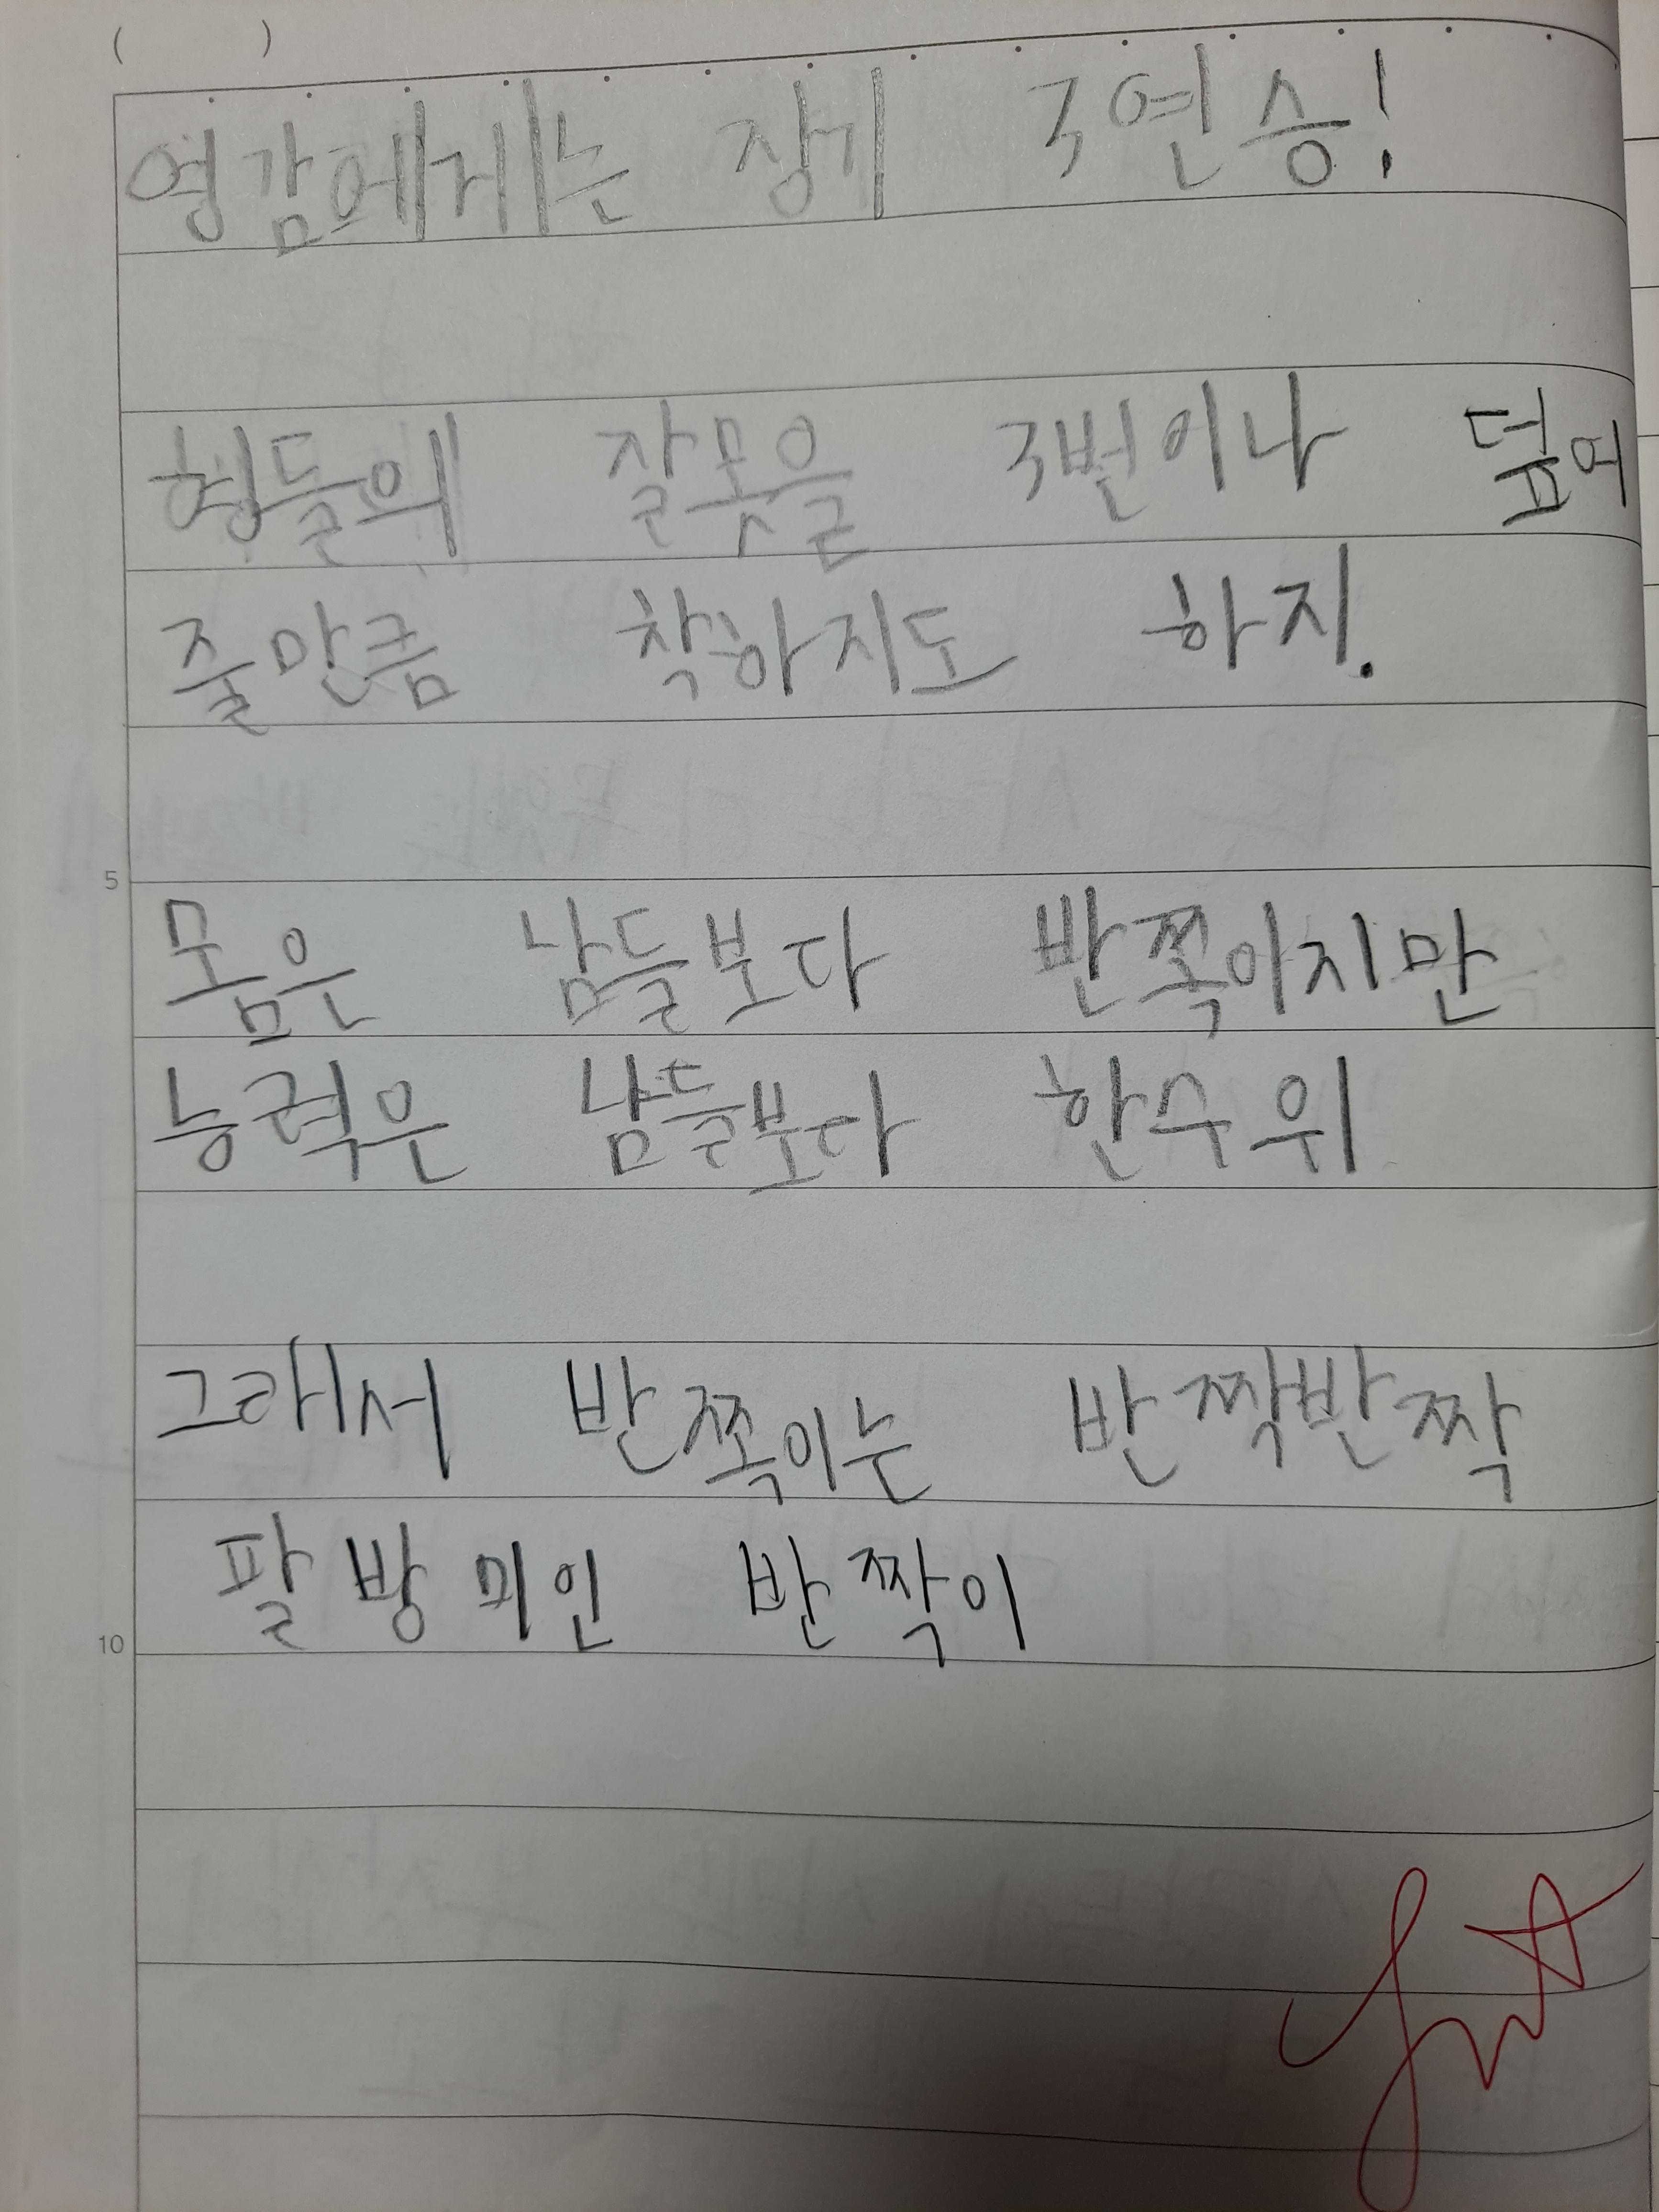 영감에게는 장기 3연승!
형들의 잘못을 3번이나 덮어
줄만큼 착하지도 하지.
몸은 남들보다 반쪽이지만
능력은 남들보다 한수위
그래서 반쪽이는 반짝반짝
팔방미인 반짝이
5
10